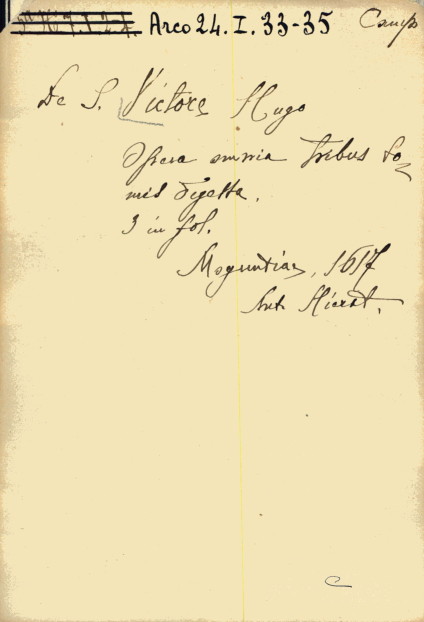 Arco 24. I. 33-35 Camp
De S. Victore Hugo
Opera omnia tribus to-
mis digesta.
3 in fol.
Moguntiae, 1617
Ant. Hierat.